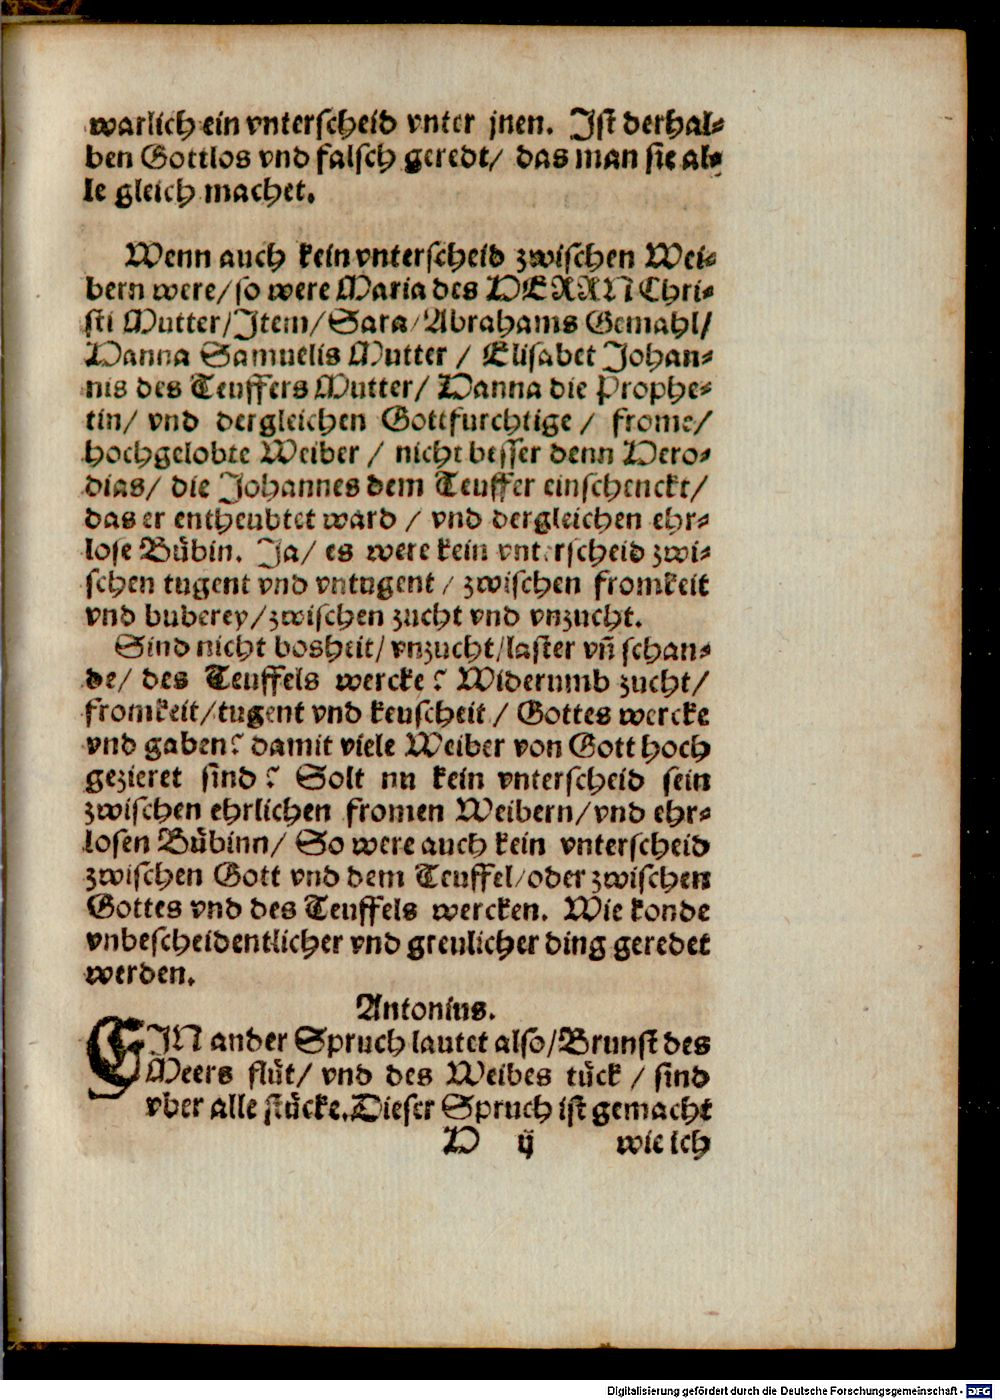 warlich ein vnterscheid vnter jnen. Ist derhal⸗
ben Gottlos vnd falsch geredt/ das man sie al⸗
le gleich machet.
Wenn auch kein vnterscheid zwischen Wei⸗
bern were/ so were Maria des HERRN Chri⸗
sti Mutter/ Item/ Sara/ Abrahams Gemahl/
Hanna Samuelis Mutter / Elisabet Johan⸗
nis des Teuffers Mutter/ Hanna die Prophe⸗
tin/ vnd dergleichen Gottfurchtige / frome/
hochgelobte Weiber / nicht besser denn Hero⸗
dias/ die Johannes dem Teuffer einschenckt/
das er entheubtet ward / vnd dergleichen ehr⸗
lose Bübin. Ja/ es were kein vnterscheid zwi⸗
schen tugent vnd vntugent / zwischen fromkeit
vnd buberey/ zwischen zucht vnd vnzucht.
Sind nicht bosheit/ vnzucht/ laster vñ schan⸗
de/ des Teuffels wercke? Widerumb zucht/
fromkeit/ tugent vnd keuscheit / Gottes wercke
vnd gaben? damit viele Weiber von Gott hoch
gezieret sind? Solt nu kein vnterscheid sein
zwischen ehrlichen fromen Weibern/ vnd ehr⸗
losen Bübinn/ So were auch kein vnterscheid
zwischen Gott vnd dem Teuffel/ oder zwischen
Gottes vnd des Teuffels wercken. Wie konde
vnbescheidentlicher vnd greulicher ding geredet
werden.
Antonius.
EIN ander Spruch lautet also/ Brunst des
Meers flüt/ vnd des Weibes tück / sind
vber alle stücke. Dieser Spruch ist gemacht
H ij wie ich
Digitalisierung gefördert durch die Deutsche Forschungsgemeinschaft - DFG